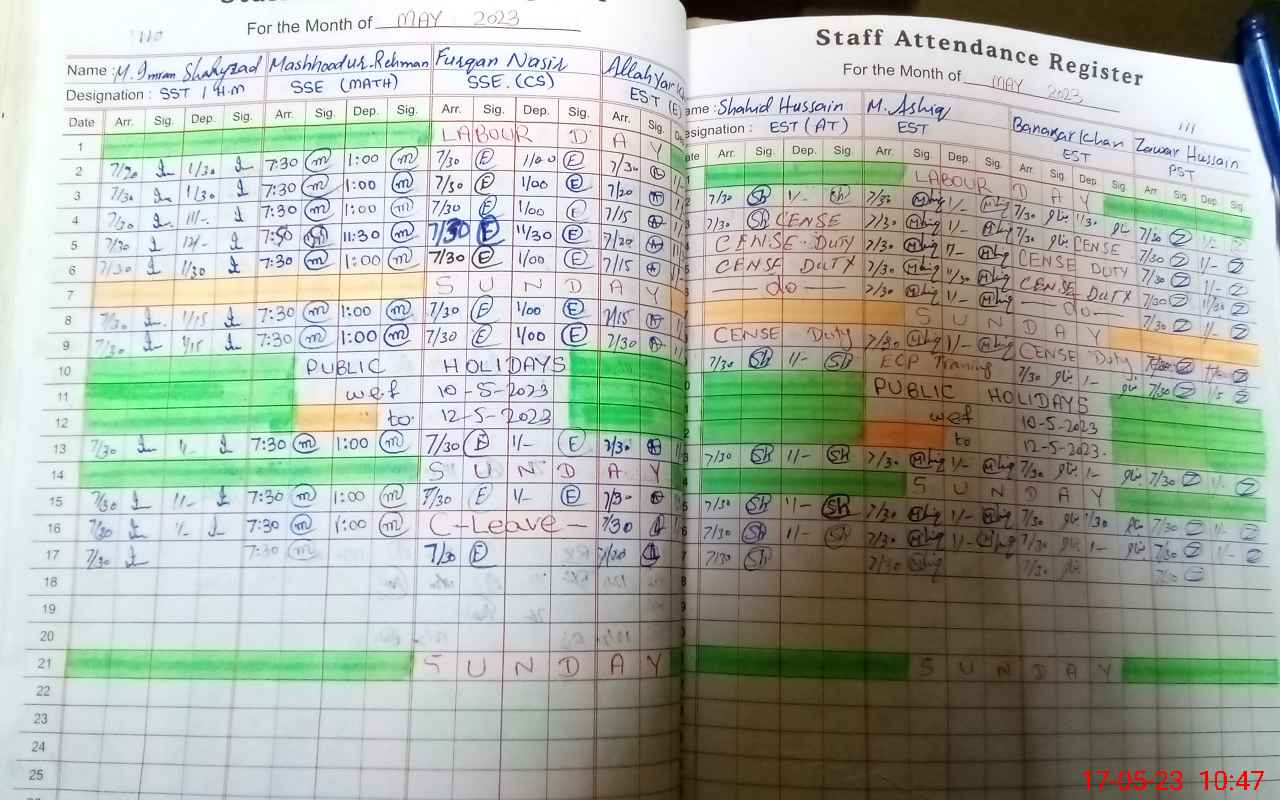 For the Month of MAY 2023
110
Name : M. Imran Shahyzad Mashhoodur.Rehman Furqan Nasir Allahyar
Designation : SST / H.M SSE (MATH) SSE. (CS) EST (E)
Date Arr. Sig. Dep. Sig. Arr. Sig. Dep. Sig. Arr. Sig. Dep. Sig. Arr. Sig.
1 LABOUR D A Y
2 7/30 1/30 7:30 m 1:00 m 7/30 E 1/00 E 7/30
3 7/30 1/30 7:30 m 1:00 m 7/30 E 1/00 E 7/20
4 7/30 7:30 m 1:00 m 7/30 E 1/00 E 7/15
5 7/30 12/- 7:30 11:30 m 7/30 E 11/30 E 7/20
6 7/30 1/30 7:30 m 1:00 m 7/30 E 1/00 E 7/15
7 S U N D A Y
8 7/30 1/15 7:30 m 1:00 m 7/30 E 1/00 E 7/15
9 7/30 1/15 7:30 m 1:00 m 7/30 E 1/00 E 7/30
10 PUBLIC HOLIDAYS
11 wef 10-5-2023
12 to 12-5-2023
13 7/30 1/- 7:30 m 1:00 m 7/30 E 1/- E 7/30
14 S U N D A Y
15 7/30 1/- 7:30 m 1:00 m 7/30 E 1/- E 7/30
16 7/30 1/- 7:30 m 1:00 m C-Leave - 7/30
17 7/30 7:30 m 7/30 E 7/30
18
19
20
21 S U N D A Y
22
23
24
25
Staff Attendance Register
For the Month of MAY 2023
111
ame : Shahid Hussain M. Ashiq Banaras Khan Zawar Hussain
esignation : EST (AT) EST EST PST
ate Arr. Sig. Dep. Sig. Arr. Sig. Dep. Sig. Arr. Sig. Dep. Sig. Arr. Sig. Dep. Sig.
LABOUR D A Y
7/30 Sh 1/- Sh 7/30 1/- 7/30 1/30 7/30 1/-
7/30 Sh CENSE 7/30 1/- 7/30 CENSE 7/30 1/-
CENSE DUTY 7/30 1/- CENSE DUTY 7/30 1/-
CENSE DUTY 7/30 11/30 CENSE DUTY 7/30 11/30
do 7/30 1/- do 7/30 1/-
S U N D A Y
CENSE Duty 7/30 1/- CENSE Duty
7/30 Sh 1/- Sh ECP Traning 7/30 1- 7/30 1/5
PUBLIC HOLIDAYS
wef 10-5-2023
to 12-5-2023.
7/30 Sh 1/- Sh 7/30 1/- 7/30 1/- 7/30 1/-
S U N D A Y
7/30 Sh 1/- Sh 7/30 1/- 7/30 1/30 7/30 1/-
7/30 Sh 1/- Sh 7/30 1/- 7/30 1- 7/30 1/-
7/30 Sh 7/30 7/30 7/30
S U N D A Y
17-05-23 10:47